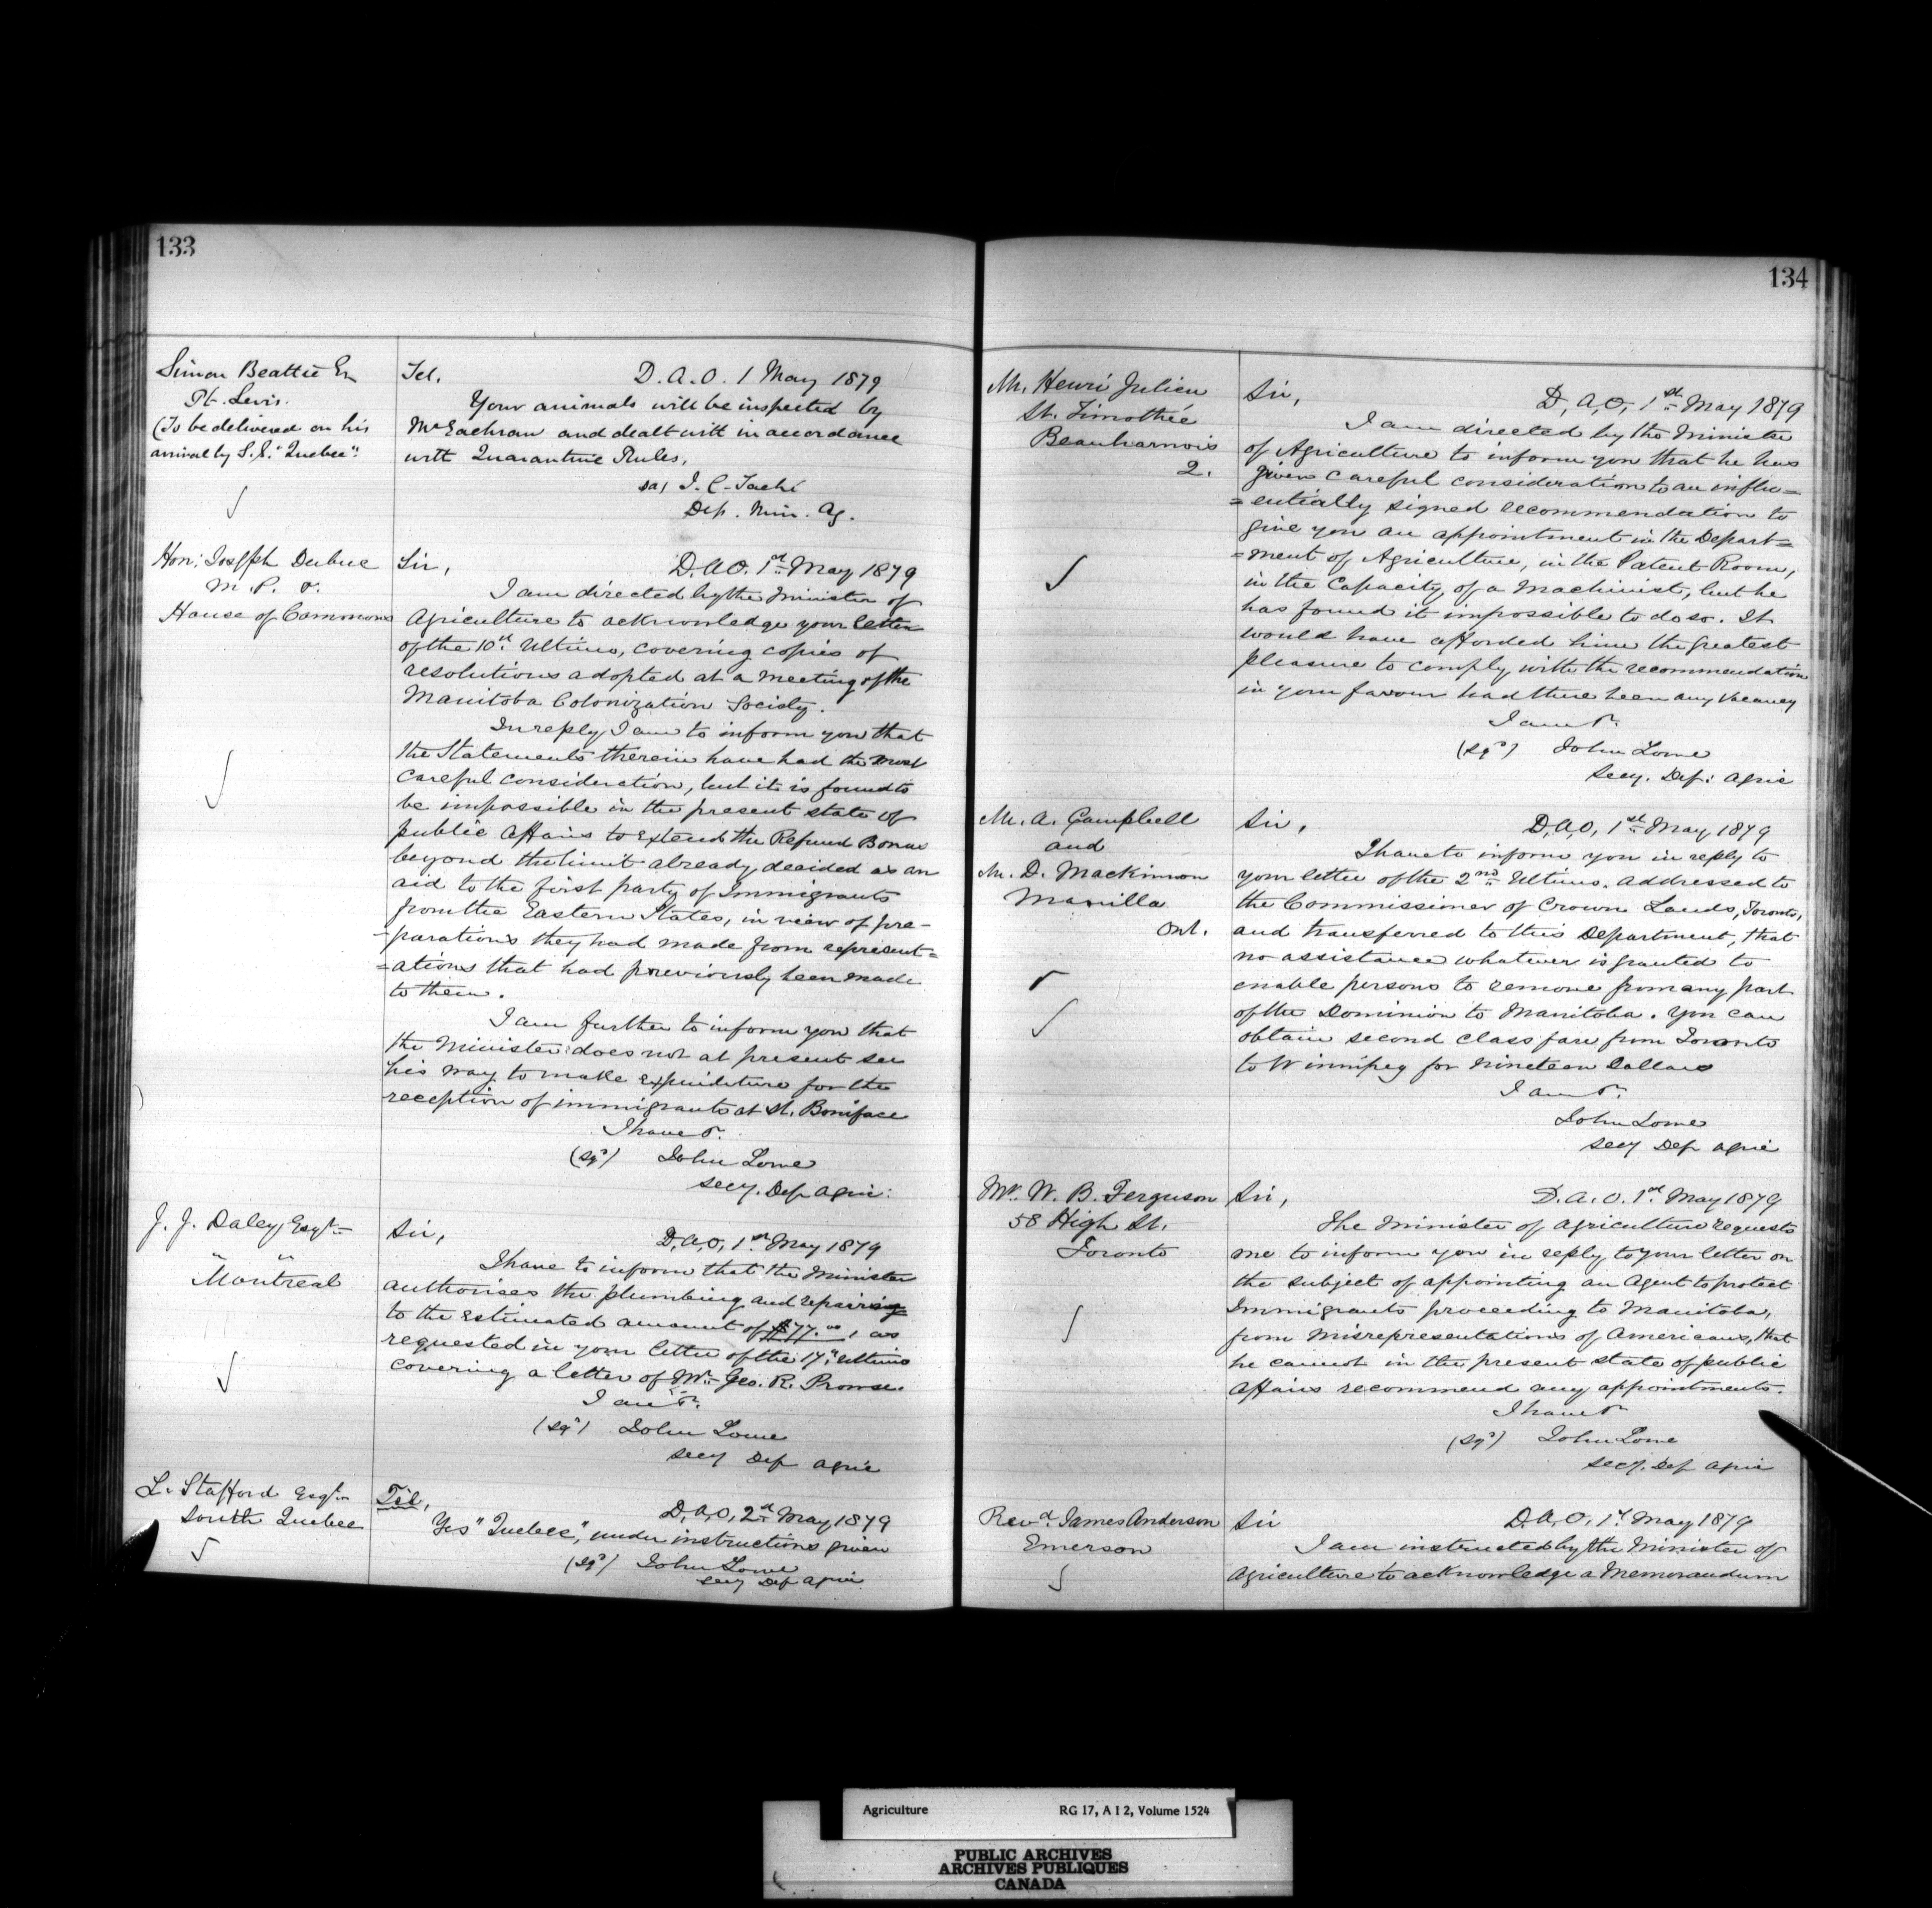 133
Simon Beattie Esq
Pt. Levis.
(To be delivered on his
arrival by S.S. "Quebec".
Tel. D.A.O. 1 May 1879
Your animals will be inspected by
McEachran and dealt with in accordance
with Quarantine Rules.
J. C. Taché
Dep. Min. Ag.
Hon: Joseph Dubuc
M. P. &.
House of Commons
Sir, D.A.O. 1st May 1879
I am directed by the Minister of
Agriculture to acknowledge your letter
of the 10th Ultimo, covering copies of
resolutions adopted at a meeting of the
Manitoba Colonization Society.
In reply I am to inform you that
the Statements therein have had the most
careful consideration, but it is found to
be impossible in the present state of
public affairs to extend the Refund Bonus
beyond the limit already decided as an
aid to the first party of Immigrants
from the Eastern States, in view of pre-
-parations they had made from represent=
=ations that had previously been made
to them.
I am further to inform you that
the Minister does not at present see
his way to make expenditure for the
reception of immigrants at St. Boniface
I have &.
(Sgd) John Lowe
Secy. Dep Agric:
J. J. Daley, Esqr
Montreal
Sir, D.A.O, 1st May 1879
I have to inform that the Minister
authorises the plumbing and repairing
to the estimated amount of $77.00, as
requested in your letter of the 17th Ultimo
covering a letter of Mr. Geo. R. Prowse.
I am &.
(Sgd) John Lowe
Secy Dep Agric
L. Stafford Esqr
South Quebec
Tel, D,A,O, 2nd May 1879
Yes "Quebec", under instructions given
(Sgd) John Lowe
Secy Dep Agric
134
Mr. Henri Julien
St. Timothée
Beauharnois
2.
Sir, D,A,O, 1st May 1879
I am directed by the Minister
of Agriculture to inform you that he has
given careful consideration to an influ=
=entially signed recommendation to
give you an appointment in the Depart=
=ment of Agriculture, in the Patent Room,
in the Capacity of a Machinist, but he
has found it impossible to do so. It
would have afforded him the greatest
pleasure to comply with the recommendation
in your favour had there been any vacancy
I am &.
(Sgd) John Lowe
Secy. Dep: Agric
Mr. A. Campbell
and
Mr. D. Mackinnon
Manilla
Ont.
Sir, D,A,O, 1st May 1879
I have to inform you in reply to
your letter of the 2nd Ultimo. addressed to
the Commissioner of Crown Lands, Toronto,
and transferred to this Department, that
no assistance whatever is granted to
enable persons to remove from any part
of the Dominion to Manitoba. You can
obtain second class fare from Toronto
to Winnipeg for nineteen Dollars
I am &.
John Lowe
Secy Dep Agric
Mr. W. B. Ferguson
58 High St.
Toronto
Sir, D.A.O. 1st May 1879
The Minister of Agriculture requests
me to inform you in reply to your letter on
the subject of appointing an Agent to protect
Immigrants proceeding to Manitoba,
from misrepresentations of Americans, that
he cannot in the present state of public
affairs recommend any appointments.
I have &
(Sgd) John Lowe
Secy. Dep Agric
Revd. James Anderson
Emerson
Sir D.A.O. 1st May 1879
I am instructed by the Minister of
Agriculture to acknowledge a Memorandum
Agriculture RG 17, A I 2, Volume 1524
PUBLIC ARCHIVES
ARCHIVES PUBLIQUES
CANADA